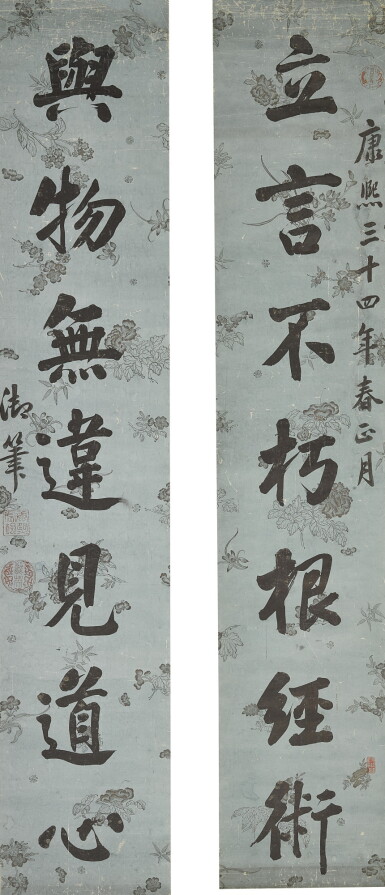 康熙三十四年春正月
立言不朽根經術
與物無違見道心
御筆